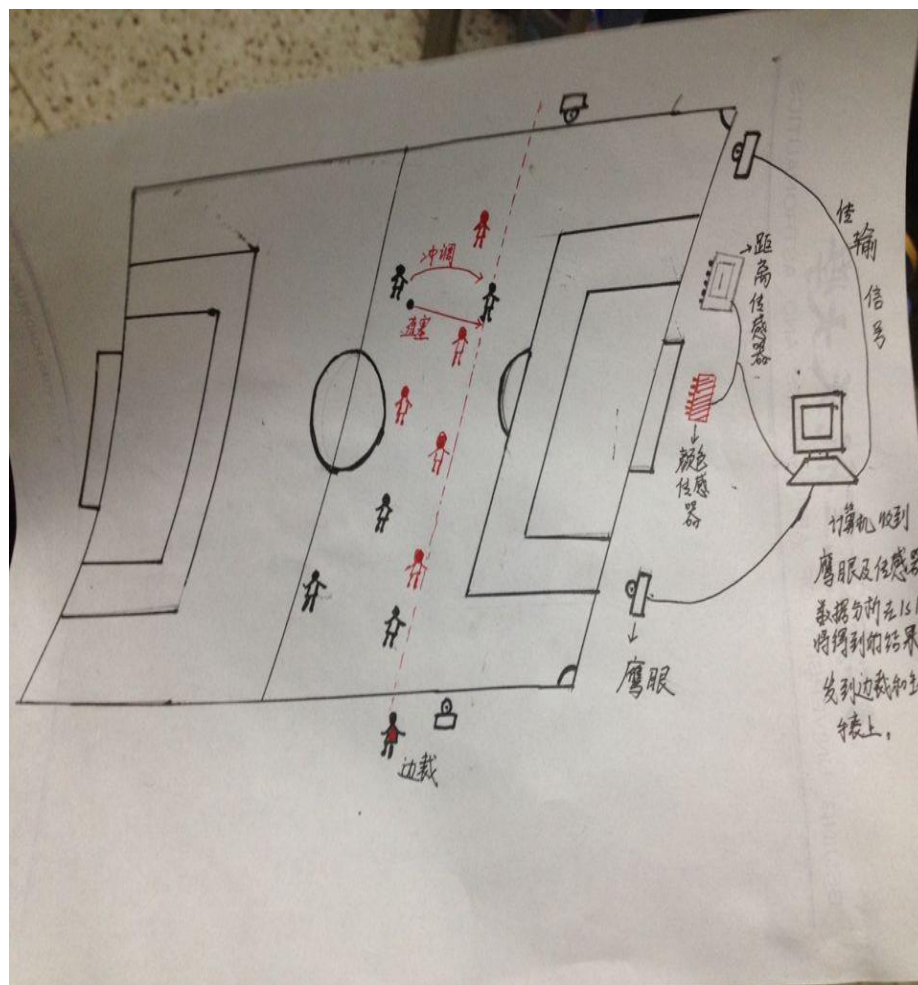 传输信号
距离传感器
颜色传感器
直塞
计算机收到
鹰眼及传感器
数据分析在1s
将得到的结果
发到边裁和主
表上。
鹰眼
边裁